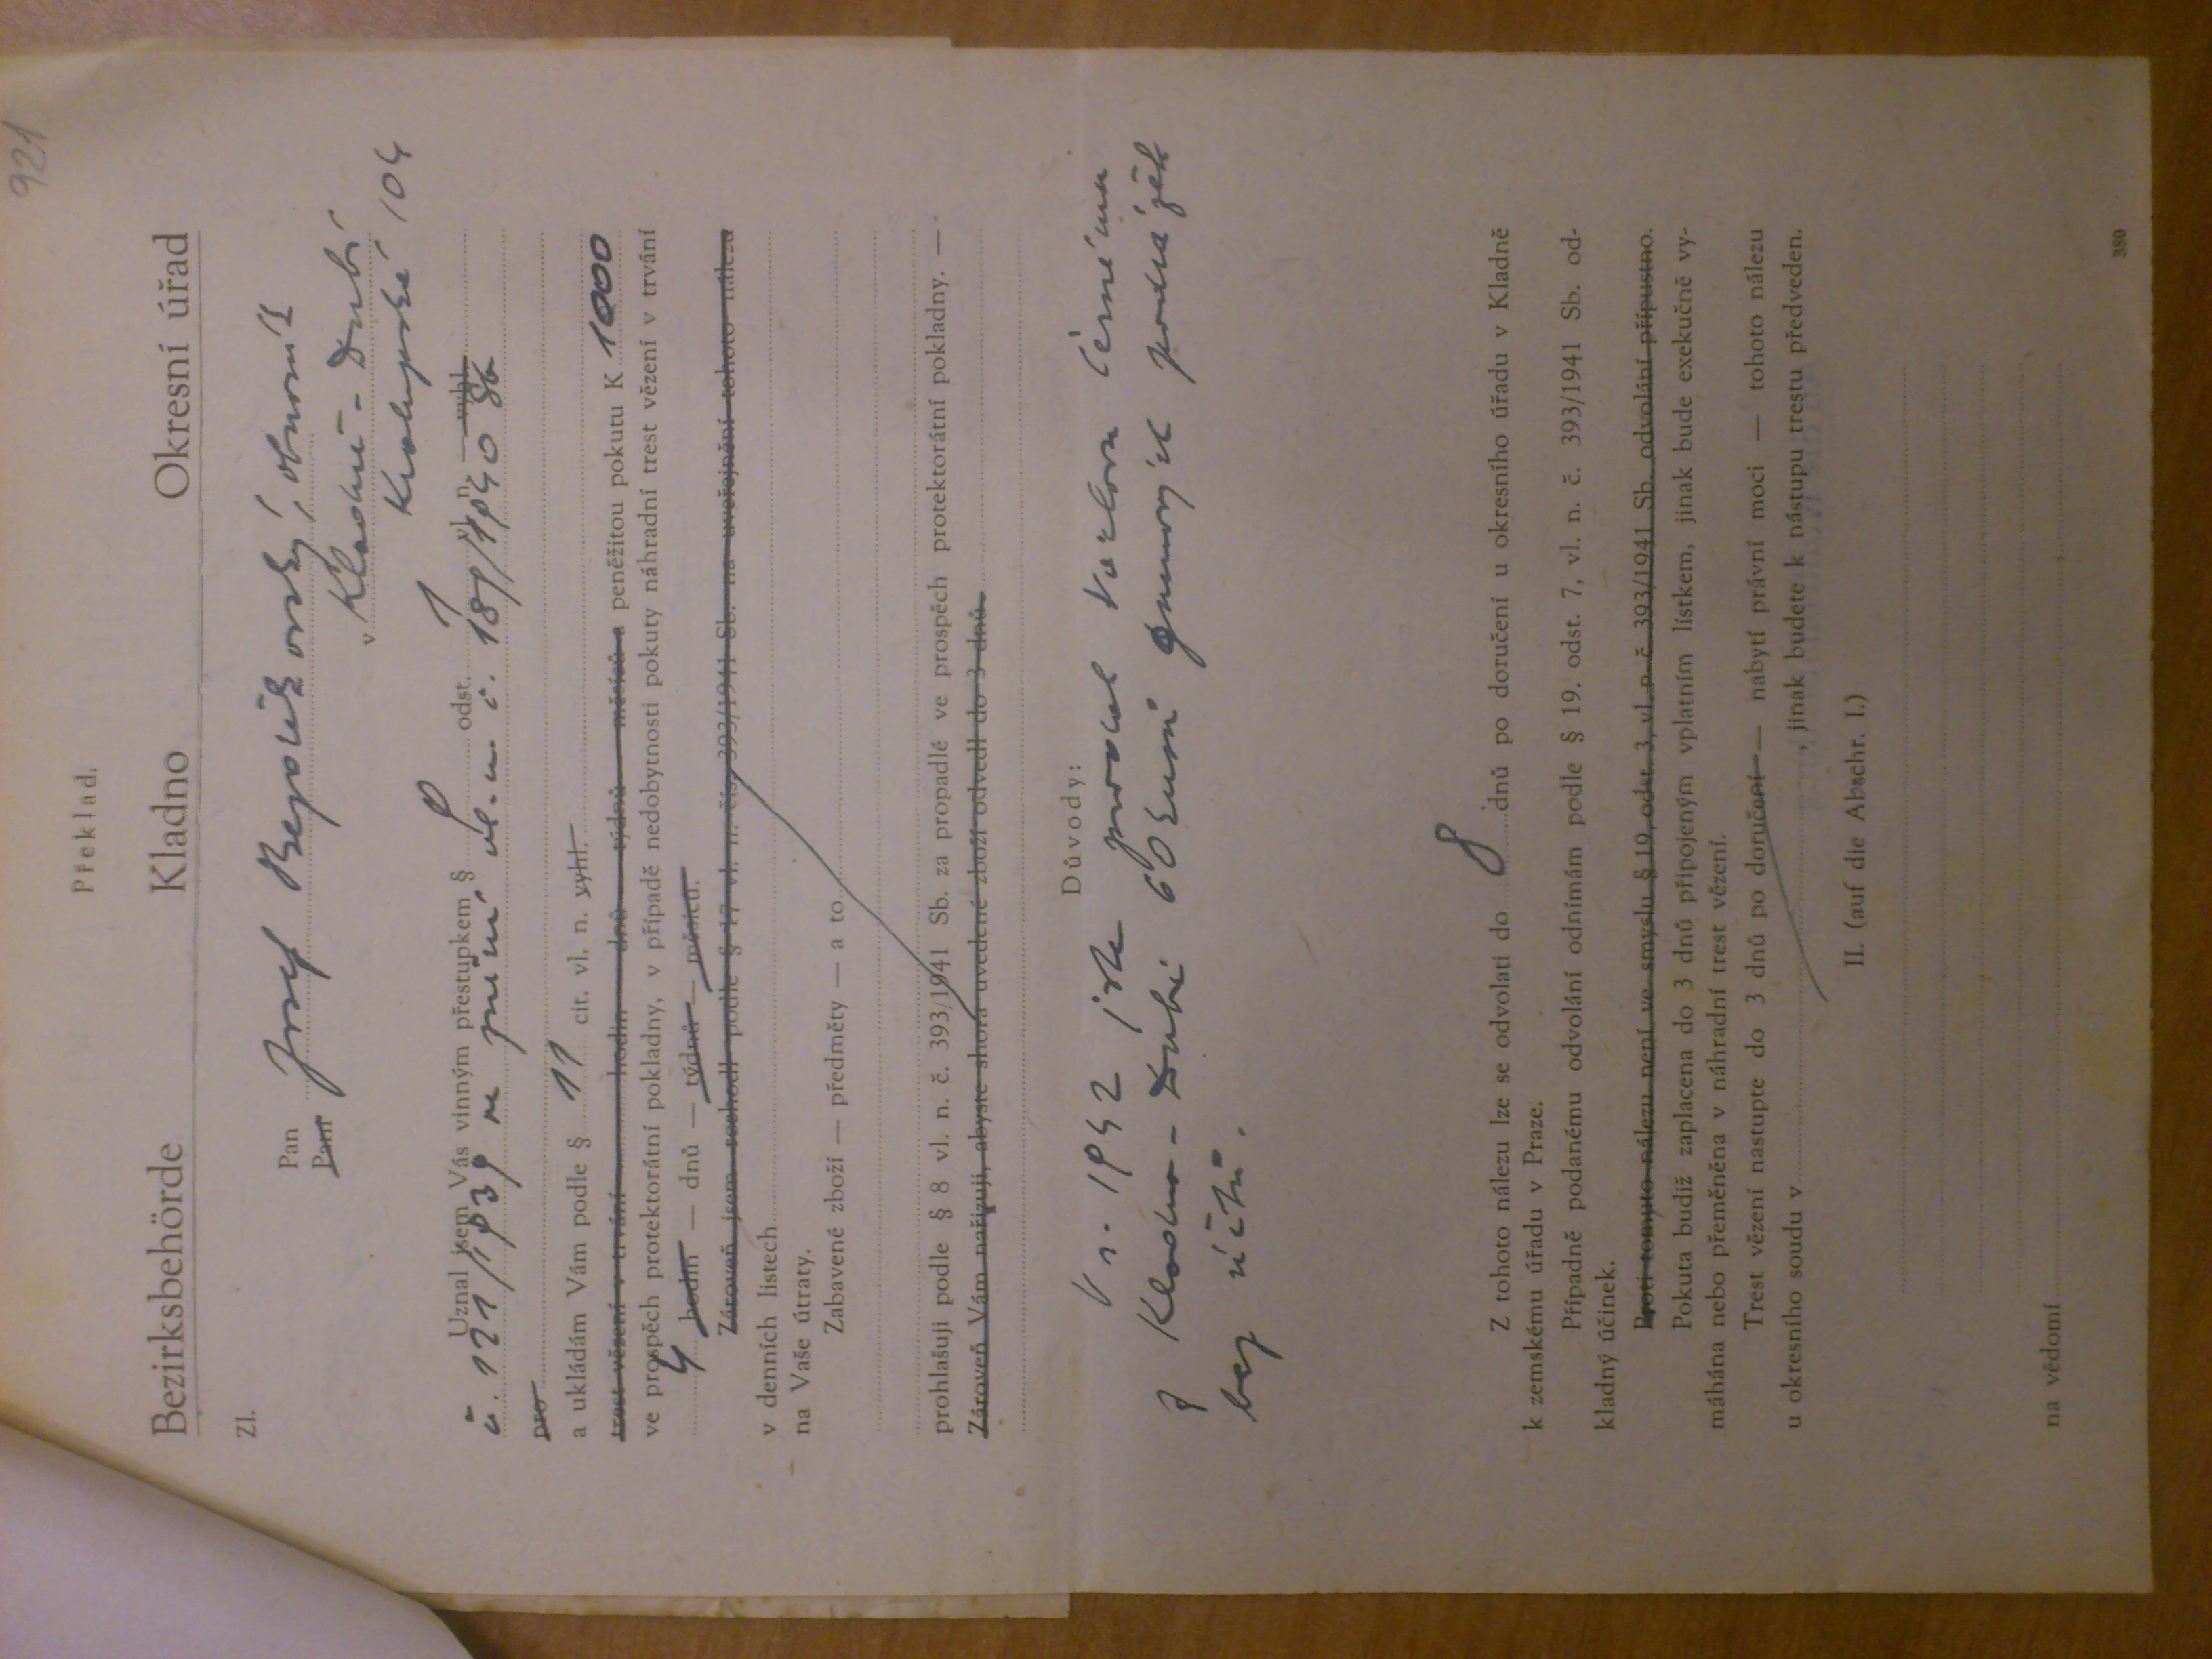 921
Překlad.
Bezirksbehörde Kladno Okresní úřad
Zl.
Pan Josef obuvník
Paní
v Kladně - Dubí
Kralupská 104
Uznal jsem Vás vinným přestupkem § 9 odst. 1 vl. n. — vyhl.
č. 121/1939 ve znění vl. n. č. 189/1940 Sb
pro
a ukládám Vám podle § 11 cit. vl. n. vyhl.
trest vězení v trvání hodin — dnů — týdnů — měsíců a peněžitou pokutu K 1000
ve prospěch protektorátní pokladny, v případě nedobytnosti pokuty náhradní trest vězení v trvání
4 hodin — dnů — týdnů — měsíců.
Zároveň jsem rozhodl podle § 17 vl. n. čís. 393/1941 Sb. na uveřejnění tohoto nálezu
v denních listech
na Vaše útraty.
Zabavené zboží — předměty — a to
prohlašuji podle § 8 vl. n. č. 393/1941 Sb. za propadlé ve prospěch protektorátní pokladny. —
Zároveň Vám nařizuji, abyste shora uvedené zboží odvedl do 3 dnů.
Důvody:
V r. 1942 jste prodal Václavu Černému
z Kladna - Dubí 60 kusů gumových podrážek
bez účtů.
Z tohoto nálezu lze se odvolati do 8 dnů po doručení u okresního úřadu v Kladně
k zemskému úřadu v Praze.
Případně podanému odvolání odnímám podle § 19. odst. 7, vl. n. č. 393/1941 Sb. od-
kladný účinek.
Proti tomuto nálezu není ve smyslu § 19, odst. 3, vl. n. č 393/1941 Sb. odvolání přípustno.
Pokuta budiž zaplacena do 3 dnů připojeným vplatním lístkem, jinak bude exekučně vy-
máhána nebo přeměněna v náhradní trest vězení.
Trest vězení nastupte do 3 dnů po doručení — nabytí právní moci — tohoto nálezu
u okresního soudu v , jinak budete k nástupu trestu předveden.
II. (auf die Abschr. I.)
na vědomí
380